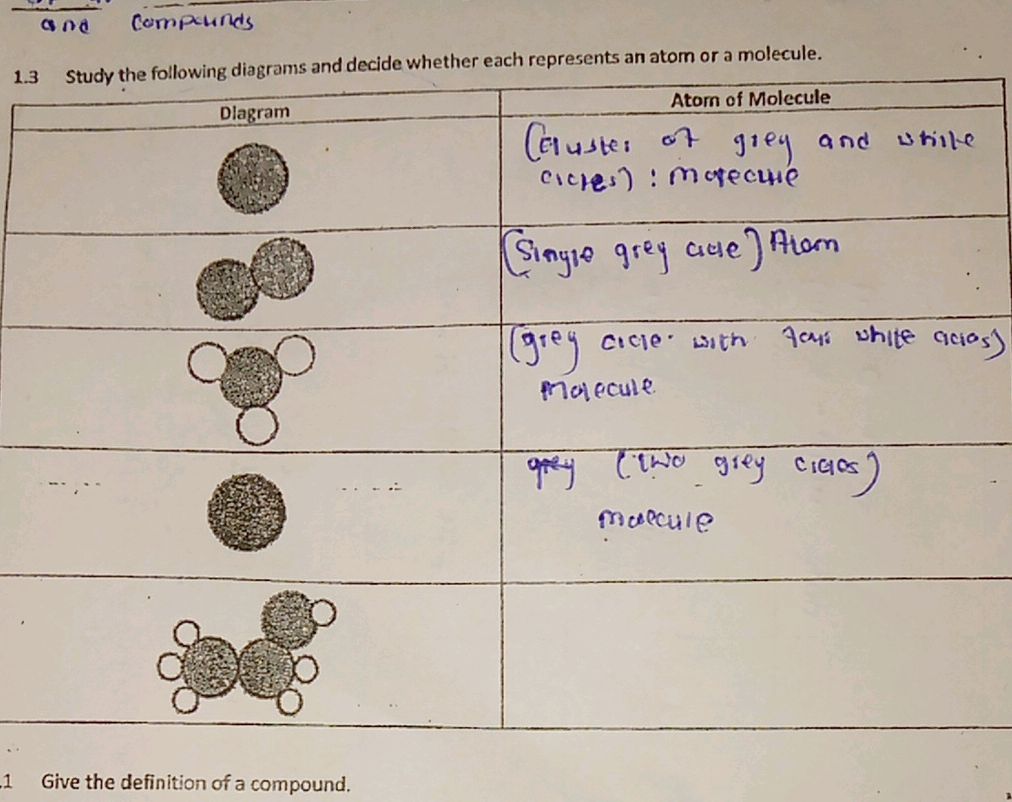 and compounds
1.3 Study the following diagrams and decide whether each represents an atom or a molecule.
Diagram
Atom of Molecule
(Cluster of grey and white
cicles) : molecule
(Single grey cicle) Atom
(grey circle with four white cicles)
Molecule
grey (two grey cicles)
molecule
.1 Give the definition of a compound.